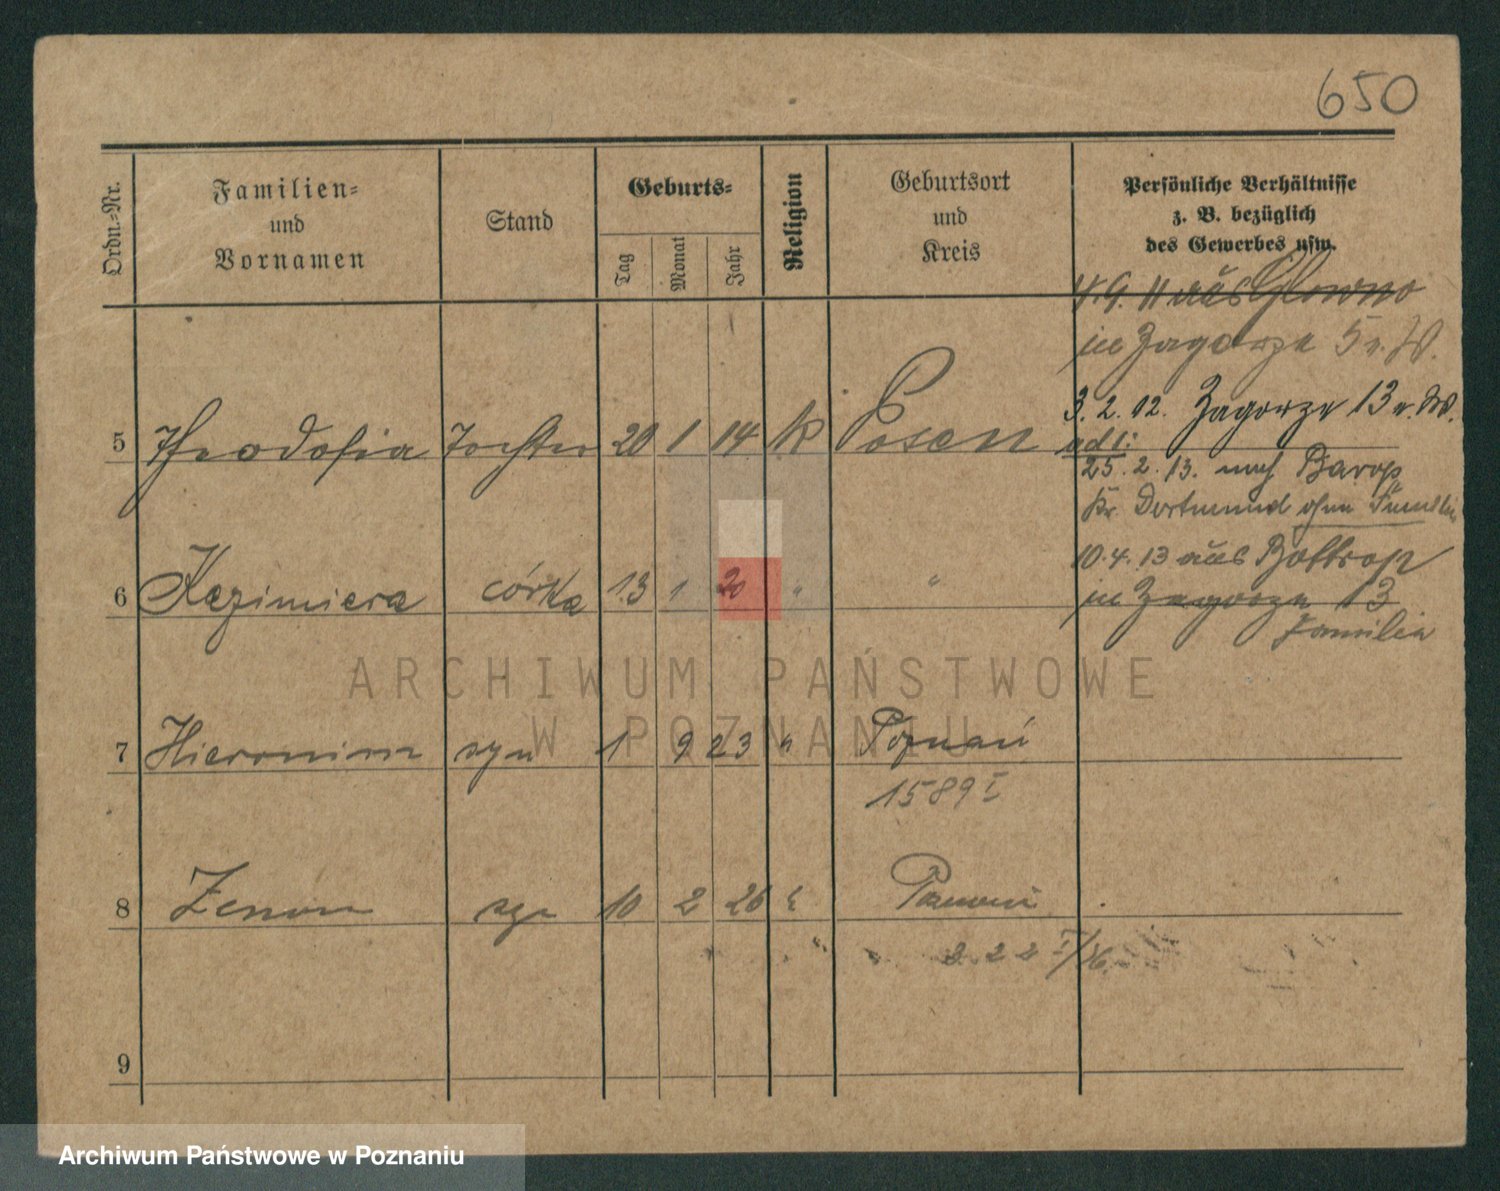 650
Ordn.=Nr.
Familien=
und
Vornamen
Stand
Geburts=
Tag
Monat
Jahr
Religion
Geburtsort
und
Kreis
Persönliche Verhältnisse
z. B. bezüglich
des Gewerbes usw.
11 aus Glowno
in Zagorze 5 v. W.
3. 2. 12. Zagorze 13 v. W.
25. 2. 13. nach Barop
Kr. Dortmund ohne Familie
10. 4. 13 aus Bottrop
in Zagorze 13
Familie
5 Theodosia Tochter 20 1 14 k Posen
6 Kazimiera córka 13 1 20 " "
7 Hieronim syn 1 9 23 " Poznań
1589 I
8 Zenon syn 10 2 26 k Poznań
9
ARCHIWUM PAŃSTWOWE
W POZNANIU
Archiwum Państwowe w Poznaniu